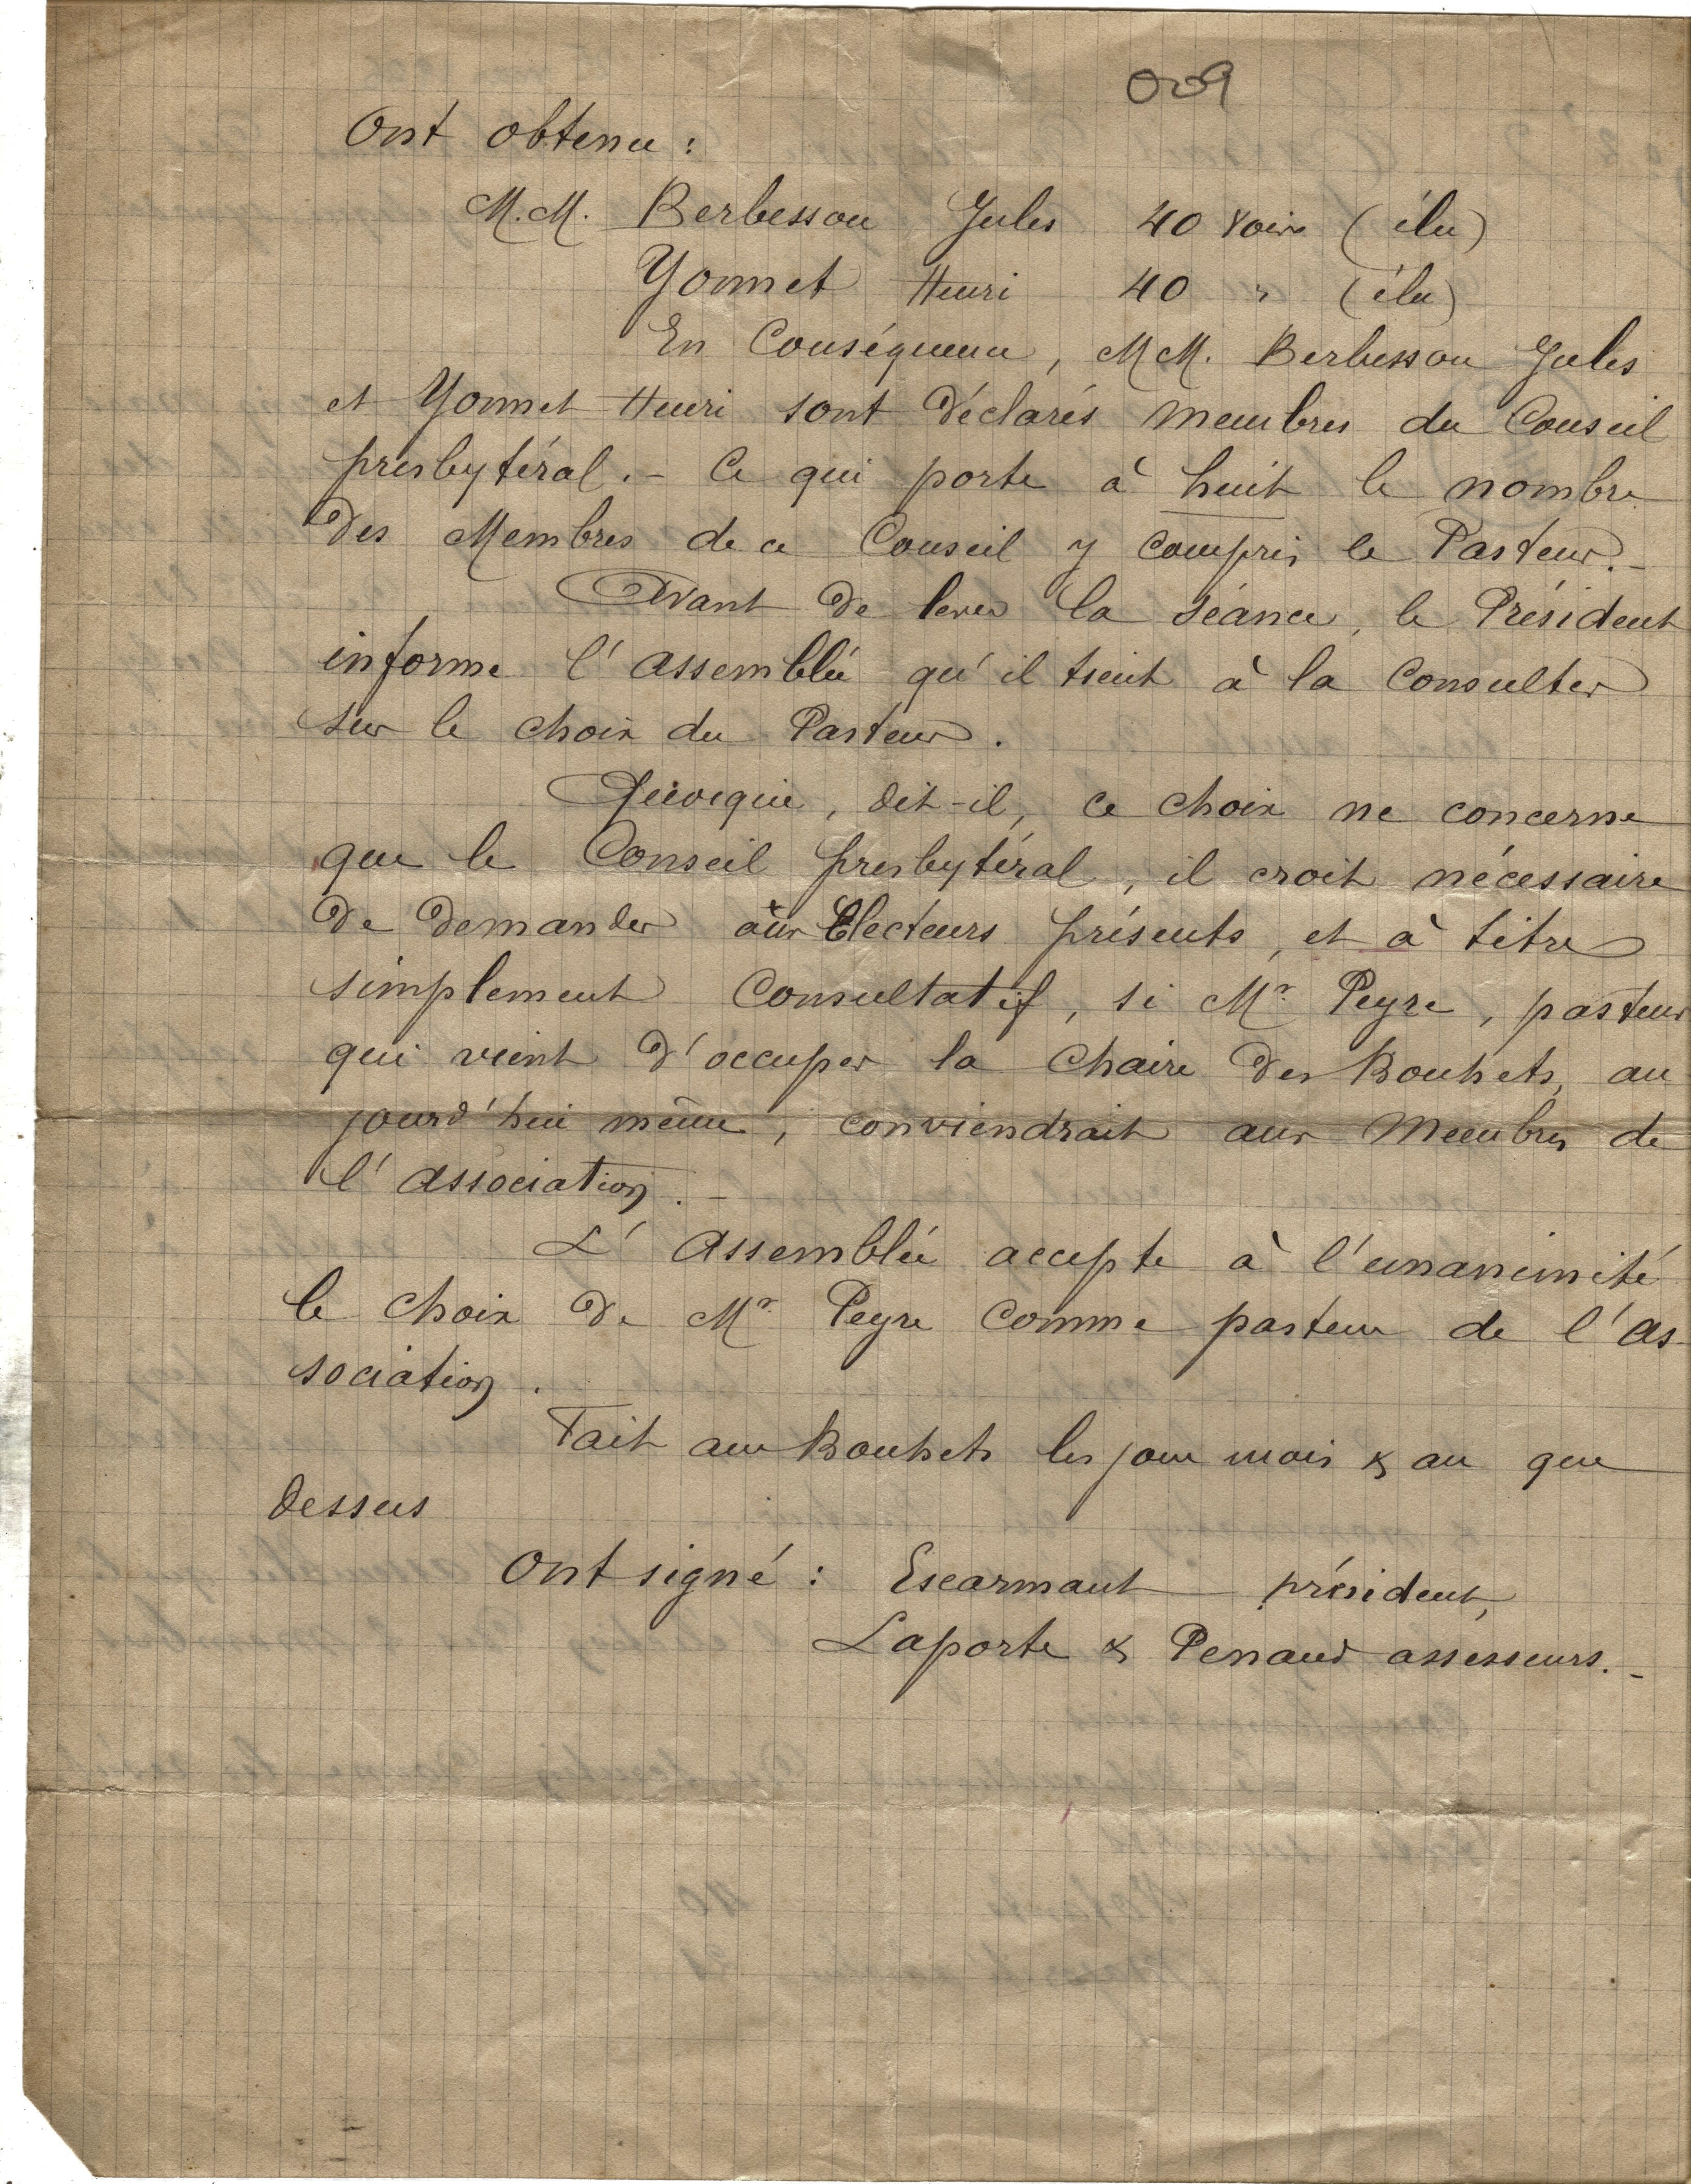 009
Ont obtenu :
M.M. Berbesson Jules 40 voix (élu)
Yonnet Henri 40 " (élu)
En Conséquence, MM. Berbesson Jules
et Yonnet Henri sont déclarés membres du Conseil
presbytéral. - Ce qui porte à huit le nombre
des Membres de ce Conseil y compris le Pasteur. -
Avant de lever la séance, le Président
informe l'assemblée qu'il tient à la Consulter
sur le choix du Pasteur.
Quoique, dit-il, ce choix ne concerne
que le Conseil presbytéral, il croit nécessaire
de demander aux Electeurs présents, et à titre
simplement Consultatif, si Mr Peyre, pasteur
qui vient d'occuper la Chaire des Bouhets, au
jourd'hui même, conviendrait aux Membres de
l'association. -
L'Assemblée accepte à l'unanimité
le choix de Mr Peyre comme pasteur de l'as-
sociation.
Fait aux Bouhets les jour mois & an que
dessus
Ont signé : Escarmant président,
Laporte & Penaud assesseurs. -